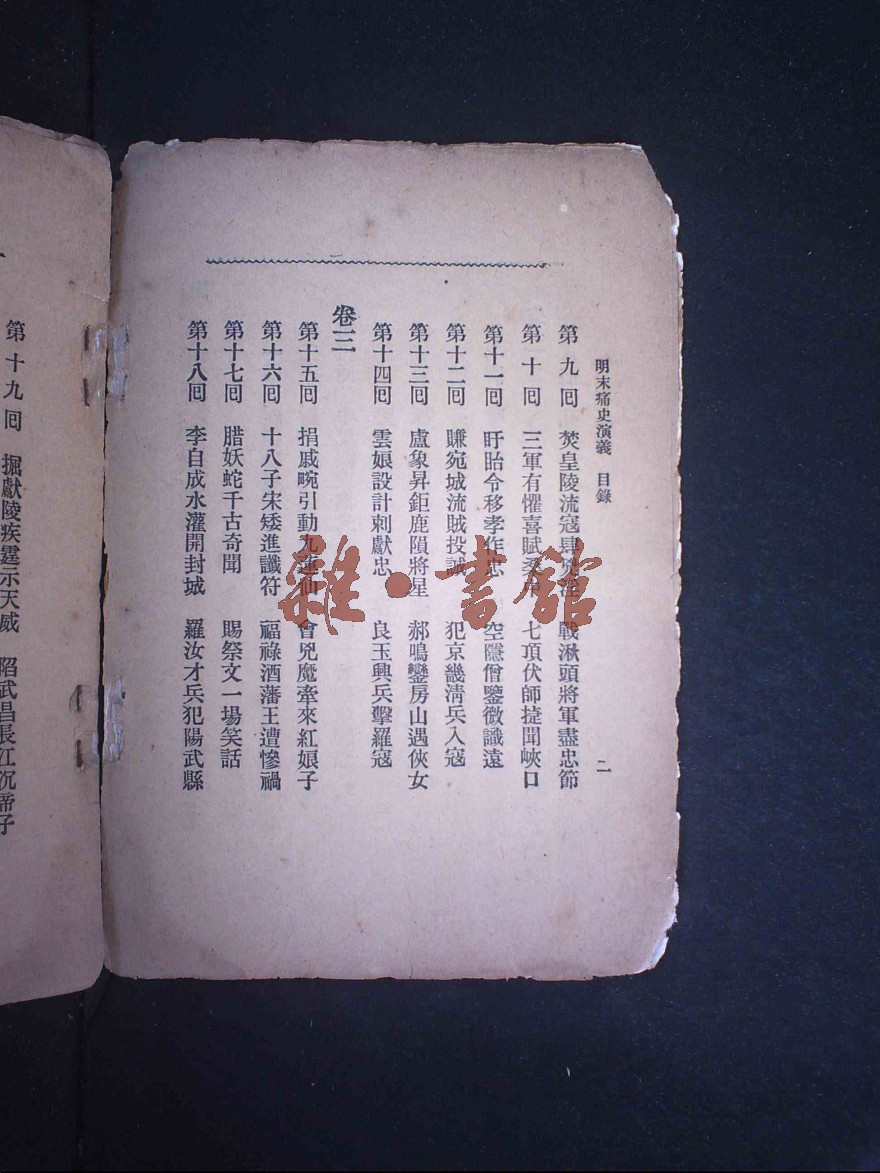 明末痛史演義 目錄 二
第九回 焚皇陵流寇肆兇淫 戰湫頭將軍盡忠節
第十回 三軍有懼喜賦 七項伏師捷聞峽口
第十一回 盱眙令移孝作忠 空隱僧鑒微識遠
第十二回 賺宛城流賊投誠 犯京畿清兵入寇
第十三回 盧象昇鉅鹿隕將星 郝鳴鸞房山遇俠女
第十四回 雲娘設計刺獻忠 良玉興兵擊羅寇
卷三
第十五回 捐戚畹引動九蓮仙 會兇魔牽來紅娘子
第十六回 十八子宋矮進讖符 福祿酒藩王遭慘禍
第十七回 腊妖蛇千古奇聞 賜祭文一場笑話
第十八回 李自成水灌開封城 羅汝才兵犯陽武縣
第十九回 掘獻陵疾霆示天威 陷武昌長江沉帝子
雜·書館